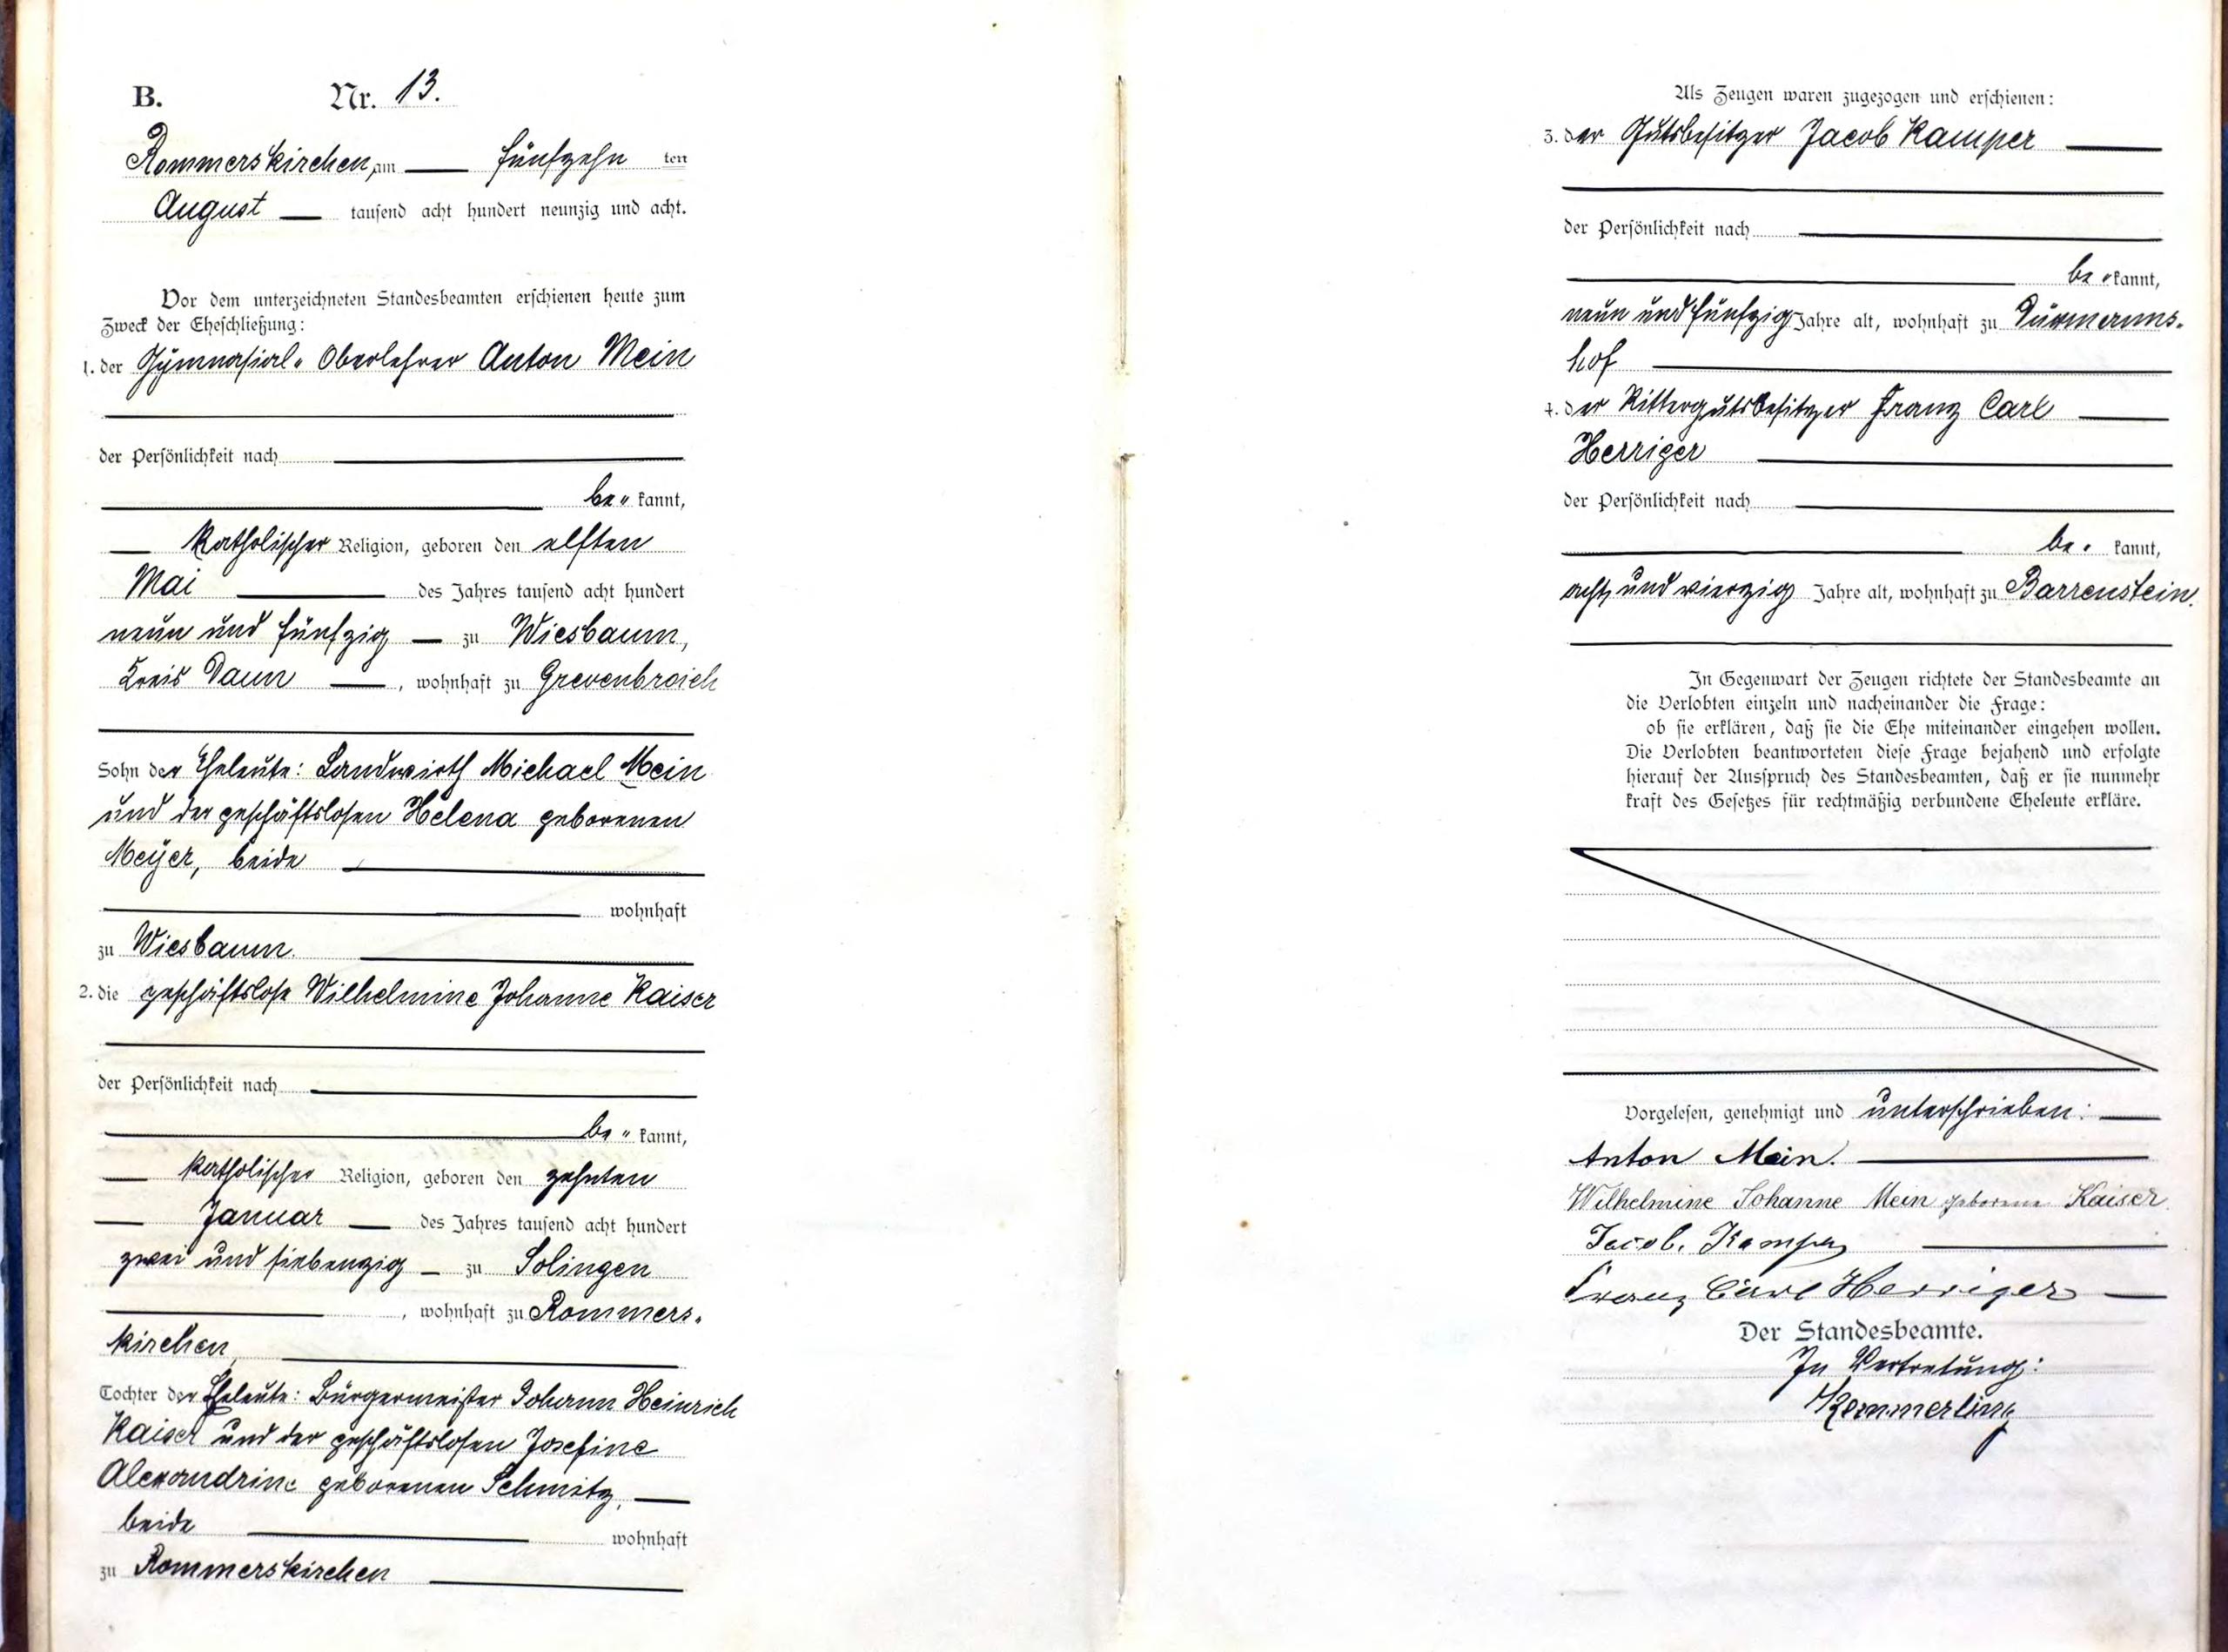 B. Nr. 13.
Rommerskirchen, am fünfzehn ten
August tausend acht hundert neunzig und acht.
Vor dem unterzeichneten Standesbeamten erschienen heute zum
Zweck der Eheschließung:
1. der Gymnasial- Oberlehrer Anton Mein
der Persönlichkeit nach
be- kannt,
katholischer Religion, geboren den elften
Mai des Jahres tausend acht hundert
neun und fünfzig zu Wiesbaum,
Kreis Daun, wohnhaft zu Grevenbroich
Sohn der Eheleute: Landwirth Michael Mein
und der geschäftslosen Helena geborenen
Meyer, beide
wohnhaft
zu Wiesbaum.
2. die geschäftslose Wilhelmine Johanne Kaiser
der Persönlichkeit nach
be- kannt,
katholischer Religion, geboren den zehnten
Januar des Jahres tausend acht hundert
zwei und siebenzig zu Solingen
, wohnhaft zu Rommers-
kirchen,
Tochter der Eheleute: Bürgermeister Johann Heinrich
Kaiser und der geschäftslosen Josefine
Alexandrine geborenen Schmitz,
beide wohnhaft
zu Rommerskirchen
Als Zeugen waren zugezogen und erschienen:
3. der Gutsbesitzer Jacob Kamper
der Persönlichkeit nach
be- kannt,
neun und fünfzig Jahre alt, wohnhaft zu Dürmanns-
hof
4. der Rittergutsbesitzer Franz Carl
Herriger
der Persönlichkeit nach
be- kannt,
acht und vierzig Jahre alt, wohnhaft zu Barrenstein.
In Gegenwart der Zeugen richtete der Standesbeamte an
die Verlobten einzeln und nacheinander die Frage:
ob sie erklären, daß sie die Ehe miteinander eingehen wollen.
Die Verlobten beantworteten diese Frage bejahend und erfolgte
hierauf der Ausspruch des Standesbeamten, daß er sie nunmehr
kraft des Gesetzes für rechtmäßig verbundene Eheleute erkläre.
Vorgelesen, genehmigt und unterschrieben:
Anton Mein.
Wilhelmine Johanne Mein geborene Kaiser.
Jacob. Kamper
Franz Carl Herriger
Der Standesbeamte.
In Vertretung:
Kemmerling